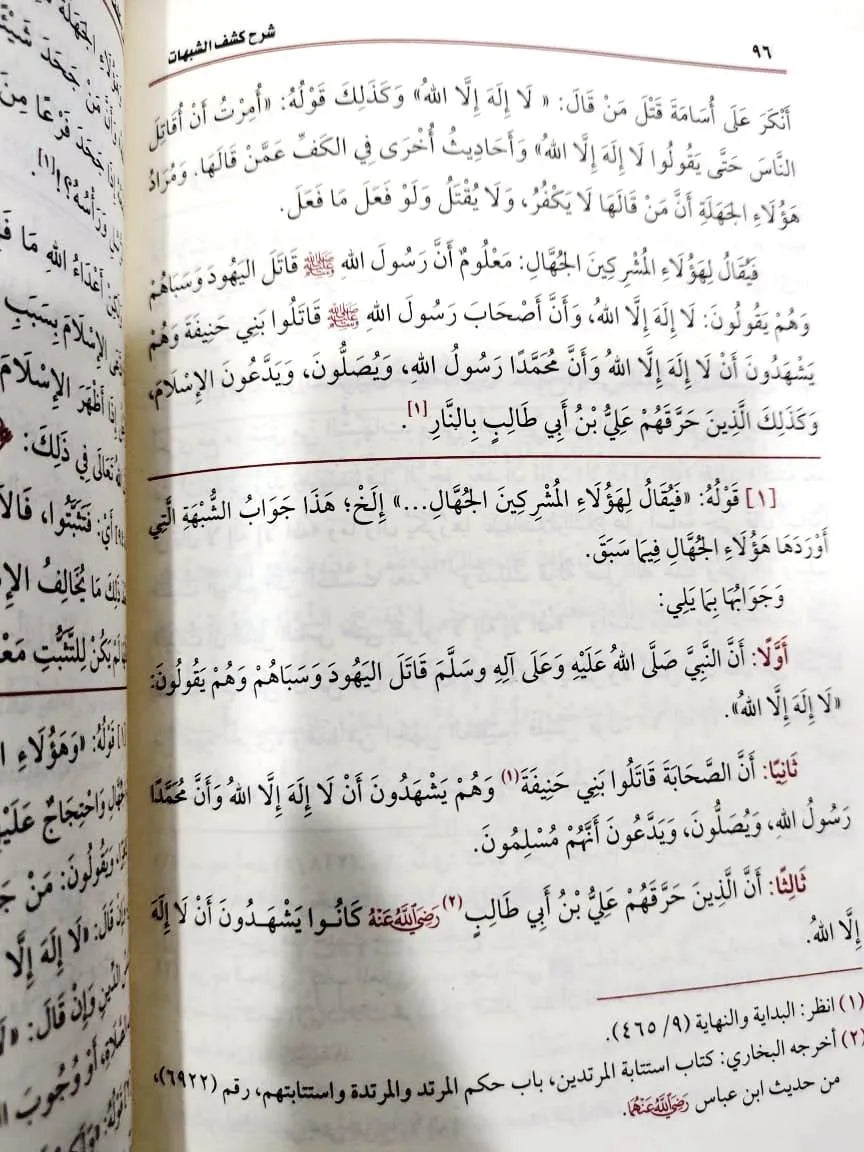 شرح كشف الشبهات
٩٦
أَنْكَرَ عَلَى أُسَامَةَ قَتْلَ مَنْ قَالَ: «لَا إِلَهَ إِلَّا اللهُ» وَكَذَلِكَ قَوْلُهُ: «أُمِرْتُ أَنْ أُقَاتِلَ
النَّاسَ حَتَّى يَقُولُوا لَا إِلَهَ إِلَّا اللهُ» وَأَحَادِيثُ أُخْرَى فِي الكَفِّ عَمَّنْ قَالَهَا. وَمُرَادُ
هَؤُلَاءِ الجَهَلَةِ أَنَّ مَنْ قَالَهَا لَا يَكْفُرُ، وَلَا يُقْتَلُ وَلَوْ فَعَلَ مَا فَعَلَ.
فَيُقَالُ لِهَؤُلَاءِ المُشْرِكِينَ الجُهَّالِ: مَعْلُومٌ أَنَّ رَسُولَ اللهِ ﷺ قَاتَلَ اليَهُودَ وَسَبَاهُمْ
وَهُمْ يَقُولُونَ: لَا إِلَهَ إِلَّا اللهُ، وَأَنَّ أَصْحَابَ رَسُولِ اللهِ ﷺ قَاتَلُوا بَنِي حَنِيفَةَ وَهُمْ
يَشْهَدُونَ أَنْ لَا إِلَهَ إِلَّا اللهُ وَأَنَّ مُحَمَّدًا رَسُولُ اللهِ، وَيُصَلُّونَ، وَيَدَّعُونَ الإِسْلَامَ،
وَكَذَلِكَ الَّذِينَ حَرَّقَهُمْ عَلِيُّ بْنُ أَبِي طَالِبٍ بِالنَّارِ[١].
[١] قَوْلُهُ: «فَيُقَالُ لِهَؤُلَاءِ المُشْرِكِينَ الجُهَّالِ...» إِلَخْ؛ هَذَا جَوَابُ الشُّبْهَةِ الَّتِي
أَوْرَدَهَا هَؤُلَاءِ الجُهَّالِ فِيمَا سَبَقَ.
وَجَوَابُهَا بِمَا يَلِي:
أَوَّلًا: أَنَّ النَّبِيَّ صَلَّى اللهُ عَلَيْهِ وَعَلَى آلِهِ وسَلَّمَ قَاتَلَ اليَهُودَ وَسَبَاهُمْ وَهُمْ يَقُولُونَ:
«لَا إِلَهَ إِلَّا اللهُ».
ثَانِيًا: أَنَّ الصَّحَابَةَ قَاتَلُوا بَنِي حَنِيفَةَ(١) وَهُمْ يَشْهَدُونَ أَنْ لَا إِلَهَ إِلَّا اللهُ وَأَنَّ مُحَمَّدًا
رَسُولُ اللهِ، وَيُصَلُّونَ، وَيَدَّعُونَ أَنَّهُمْ مُسْلِمُونَ.
ثَالِثًا: أَنَّ الَّذِينَ حَرَّقَهُمْ عَلِيُّ بْنُ أَبِي طَالِبٍ(٢) رَضِيَ اللَّهُ عَنْهُ كَانُوا يَشْهَدُونَ أَنْ لَا إِلَهَ
إِلَّا اللهُ.
(١) انظر: البداية والنهاية (٩/ ٤٦٥).
(٢) أخرجه البخاري: كتاب استتابة المرتدين، باب حكم المرتد والمرتدة واستتابتهم، رقم (٦٩٢٢)،
من حديث ابن عباس رَضِيَ اللَّهُ عَنْهُمَا.